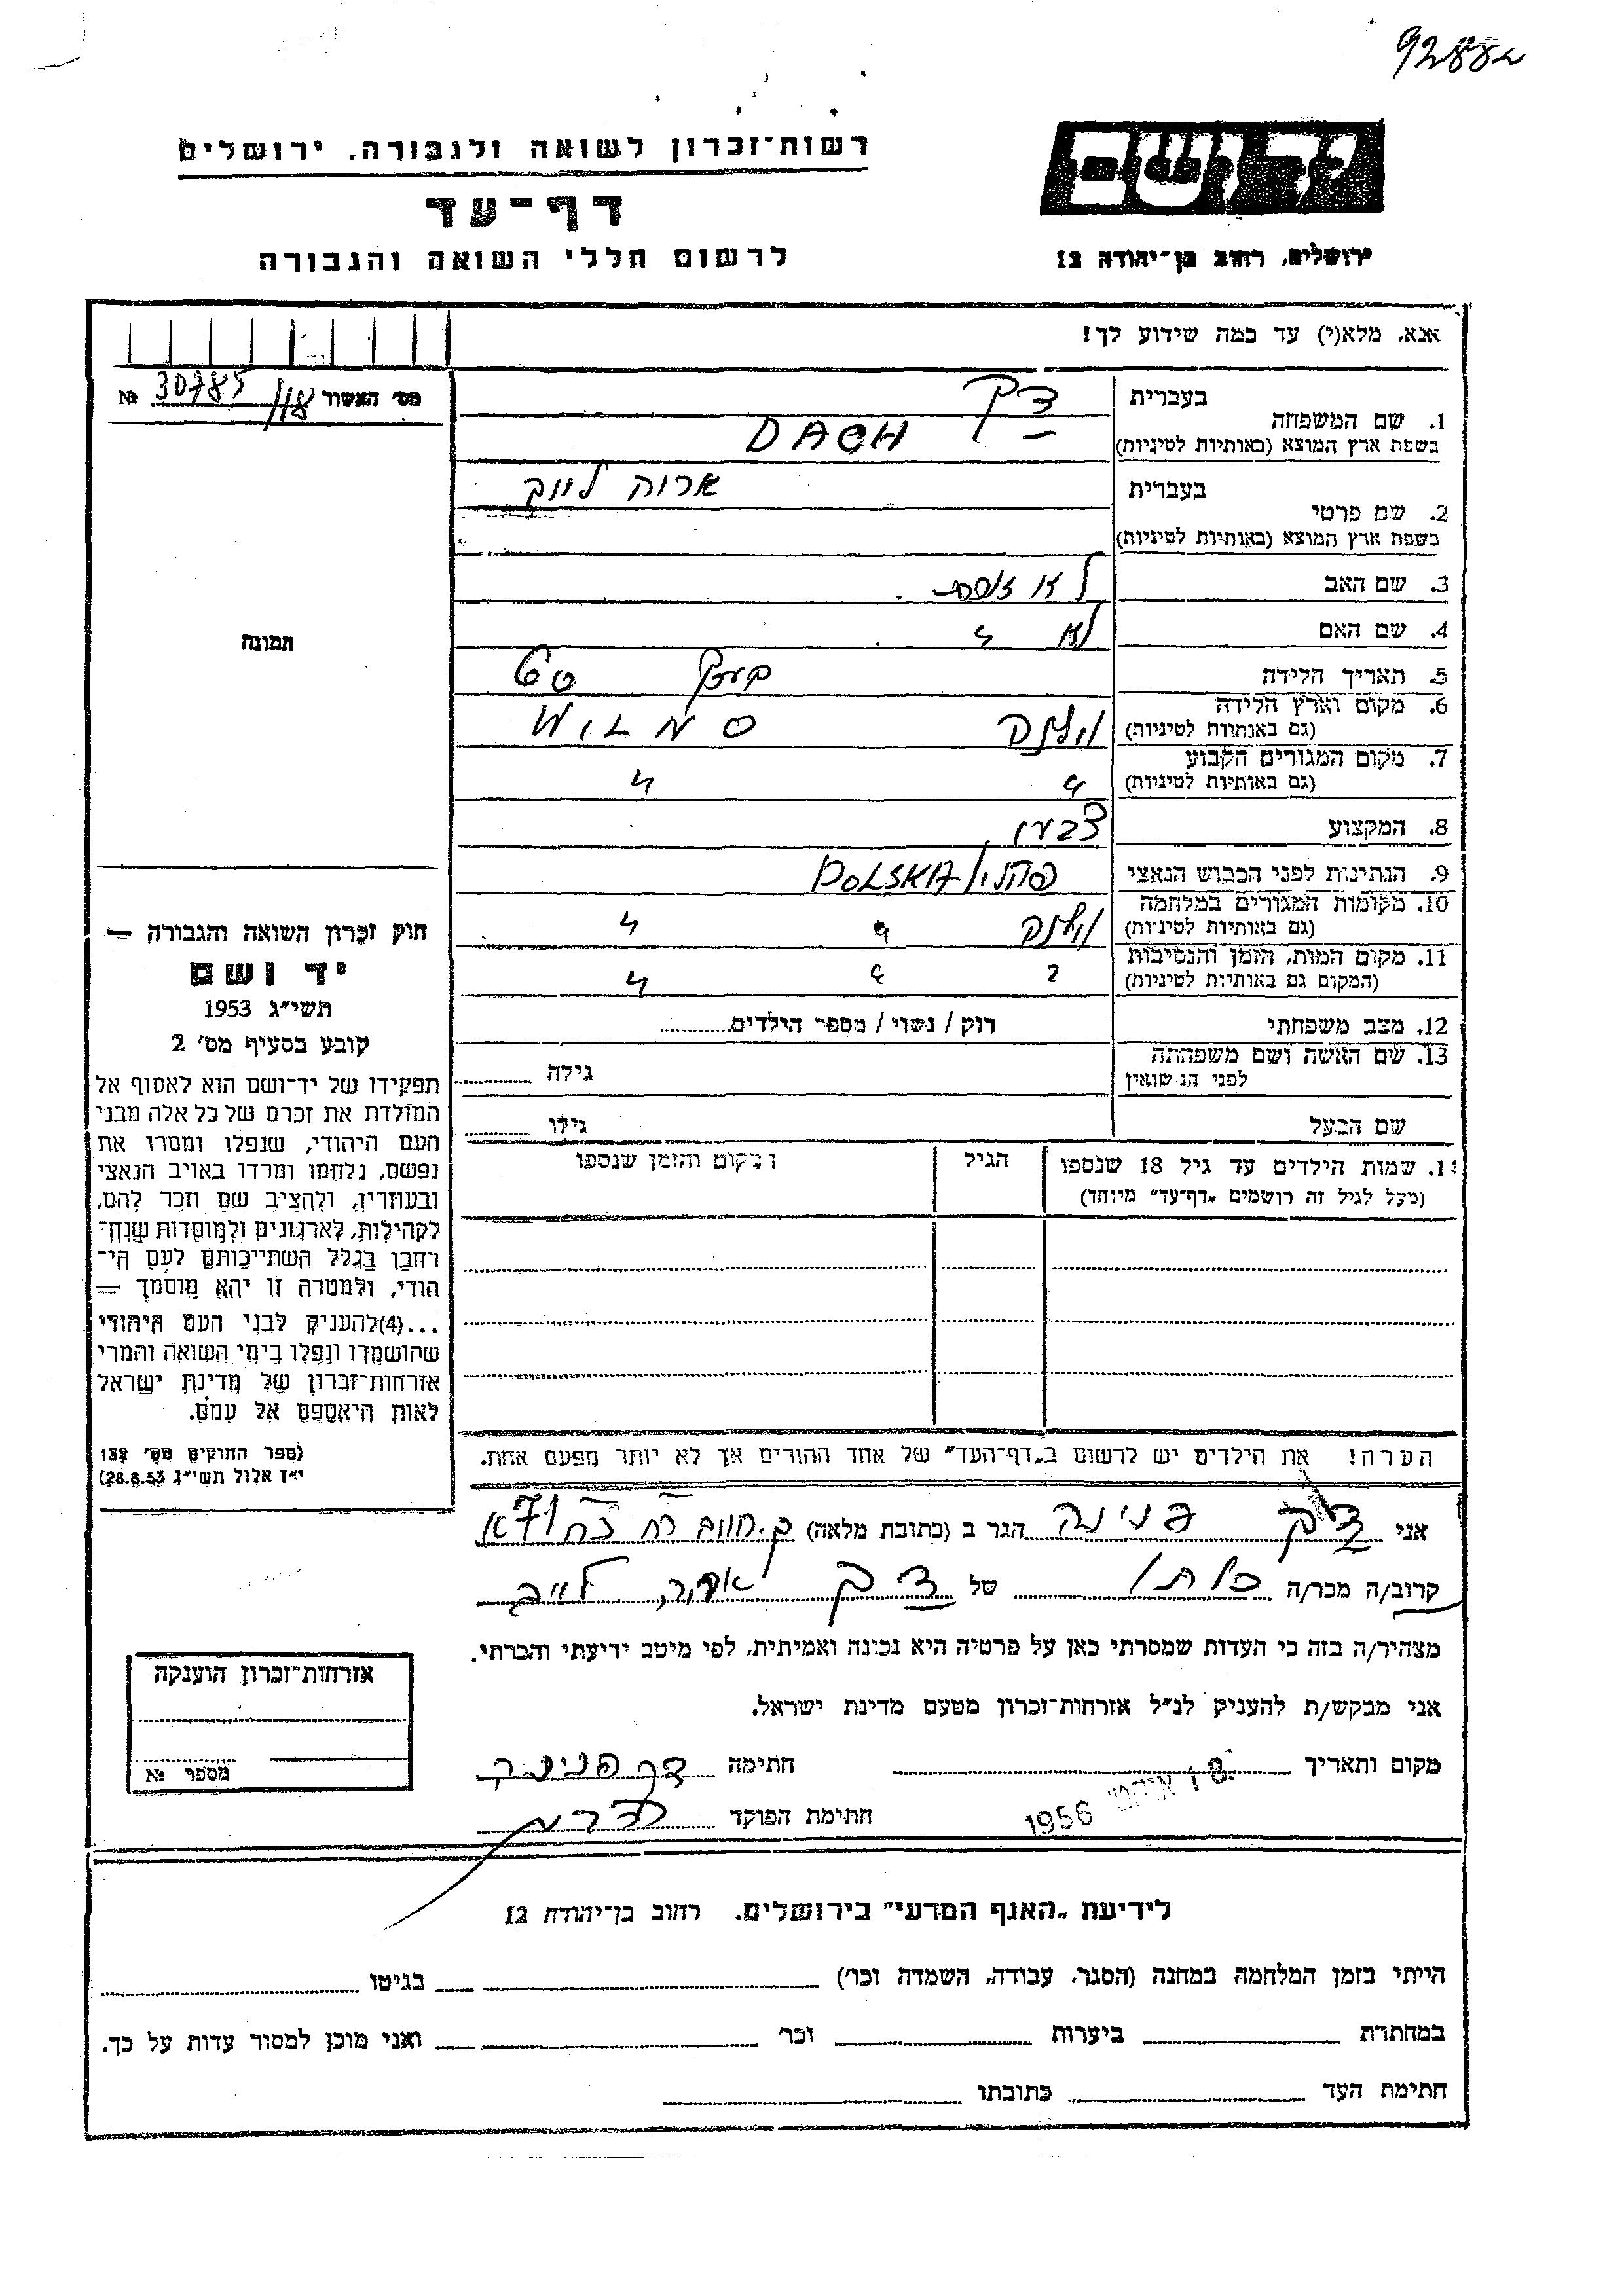 רשות־זכרון לשואה ולגבורה, ירושלים
דף־עד
לרשום חללי השואה והגבורה
יד ושם
ירושלים, רחוב בן־יהודה 12
אנא, מלא(י) עד כמה שידוע לך!
מס׳ האשור 30785 №
תמונה
בעברית דך
1. שם המשפחה
בשפת ארץ המוצא (באותיות לטיניות) DACH
בעברית אריה לייב
2. שם פרטי
בשפת ארץ המוצא (באותיות לטיניות)
3. שם האב לא
4. שם האם לא
5. תאריך הלידה
6. מקום וארץ הלידה
(גם באותיות לטיניות) וילנה WILNO
7. מקום המגורים הקבוע
(גם באותיות לטיניות) " "
8. המקצוע
9. הנתינות לפני הכבוש הנאצי POLSKA
10. מקומות המגורים במלחמה
(גם באותיות לטיניות) וילנה " "
11. מקום המות, הזמן והנסיבות
(המקום גם באותיות לטיניות)
12. מצב משפחתי רוק / נשוי / מספר הילדים
13. שם האשה ושם משפחתה
לפני הנישואין גילה
שם הבעל גילו
שמות הילדים עד גיל 18 שנספו הגיל מקום והזמן שנספו
(מעל לגיל זה רושמים „דף־עד” מיוחד)
חוק זכרון השואה והגבורה —
יד ושם
תשי״ג 1953
קובע בסעיף מס׳ 2
תפקידו של יד־ושם הוא לאסוף אל
המולדת את זכרם של כל אלה מבני
העם היהודי, שנפלו ומסרו את
נפשם, נלחמו ומרדו באויב הנאצי
ובעוזריו, ולהציב שם וזכר להם,
לקהילות, לארגונים ולמוסדות שנח־
רבו בגלל השתייכותם לעם הי־
הודי, ולמטרה זו יהא מוסמך —
...(4) להעניק לבני העם היהודי
שהושמדו ונפלו בימי השואה והמרי
אזרחות־זכרון של מדינת ישראל
לאות היאספם אל עמם.
(ספר החוקים מס׳ 132
י״ז אלול תשי״ג 28.8.53)
הערה! את הילדים יש לרשום ב„דף־העד” של אחד ההורים אך לא יותר מפעם אחת.
אני דך פנינה הגר ב (כתובת מלאה)
קרוב/ה מכר/ה כלתו של דך אריה לייב
מצהיר/ה בזה כי העדות שמסרתי כאן על פרטיה היא נכונה ואמיתית, לפי מיטב ידיעתי והכרתי.
אני מבקש/ת להעניק לנ״ל אזרחות־זכרון מטעם מדינת ישראל.
מקום ותאריך 1956 חתימה דך פנינה
חתימת הפוקד
אזרחות־זכרון הוענקה
מספר №
לידיעת „האגף המדעי” בירושלים, רחוב בן־יהודה 12
הייתי בזמן המלחמה במחנה (הסגר, עבודה, השמדה וכו׳) בגיטו
במחתרת ביערות וכו׳ ואני מוכן למסור עדות על כך.
חתימת העד כתובתו